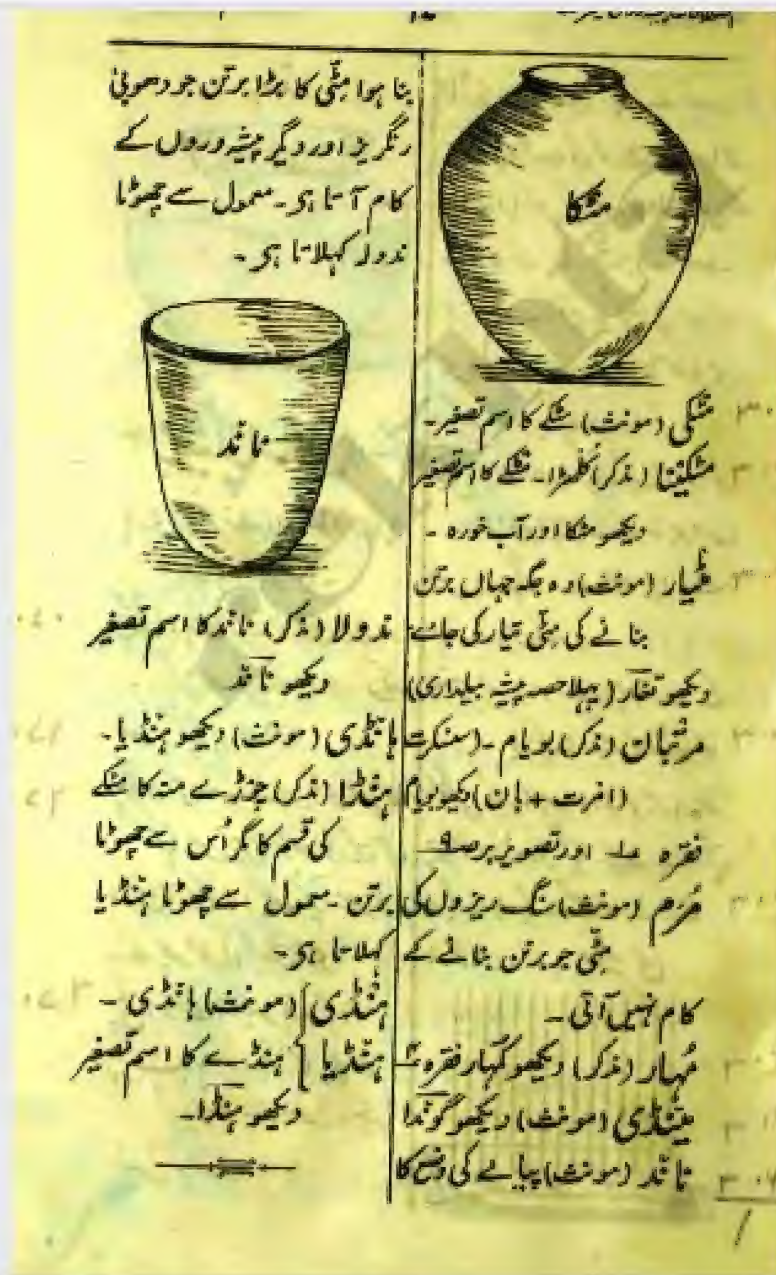 مٹکا
مٹکی (مونث) مٹکے کا اسم تصغیر۔
مٹکینا (مذکر) کلھڑا۔ مٹکے کا اسم تصغیر
دیکھو مٹکا اور آب خورہ۔
مٹیار (مونث) وہ جگہ جہاں برتن
بنانے کی مٹی تیار کی جائے
دیکھو تغار (پہلا حصہ پیشہ بیلداری)
مرتبان (مذکر) بویام۔ (سنسکرت
(امرت + بان) دیکھو بویام
فقرہ ۱۰ اور تصویر بر صہ ۹
مُرَم (مونث) سنگ ریزوں کی
مٹی جو برتن بنانے کے
کام نہیں آتی۔
مُہار (مذکر) دیکھو کمہار فقرہ ۴
مینڈی (مونث) دیکھو گوندا
ناند (مونث) پیالے کی وضع کا
بنا ہوا مٹی کا بڑا برتن جو دھوبی
رنگریز اور دیگر پیشہ وروں کے
کام آتا ہی۔ معمول سے چھوٹا
ندولہ کہلاتا ہی۔
ناند
ندولا (مذکر) ناند کا اسم تصغیر
دیکھو ناند
ہانڈی (مونث) دیکھو ہنڈیا۔
ہنڈا (مذکر) چوڑے منہ کا مٹکے
کی قسم کا مگر اُس سے چھوٹا
برتن۔ معمول سے چھوٹا ہنڈیا
کہلاتا ہی۔
ہنڈی (مونث) ہانڈی۔
ہنڈیا ہنڈے کا اسم تصغیر
دیکھو ہنڈا۔